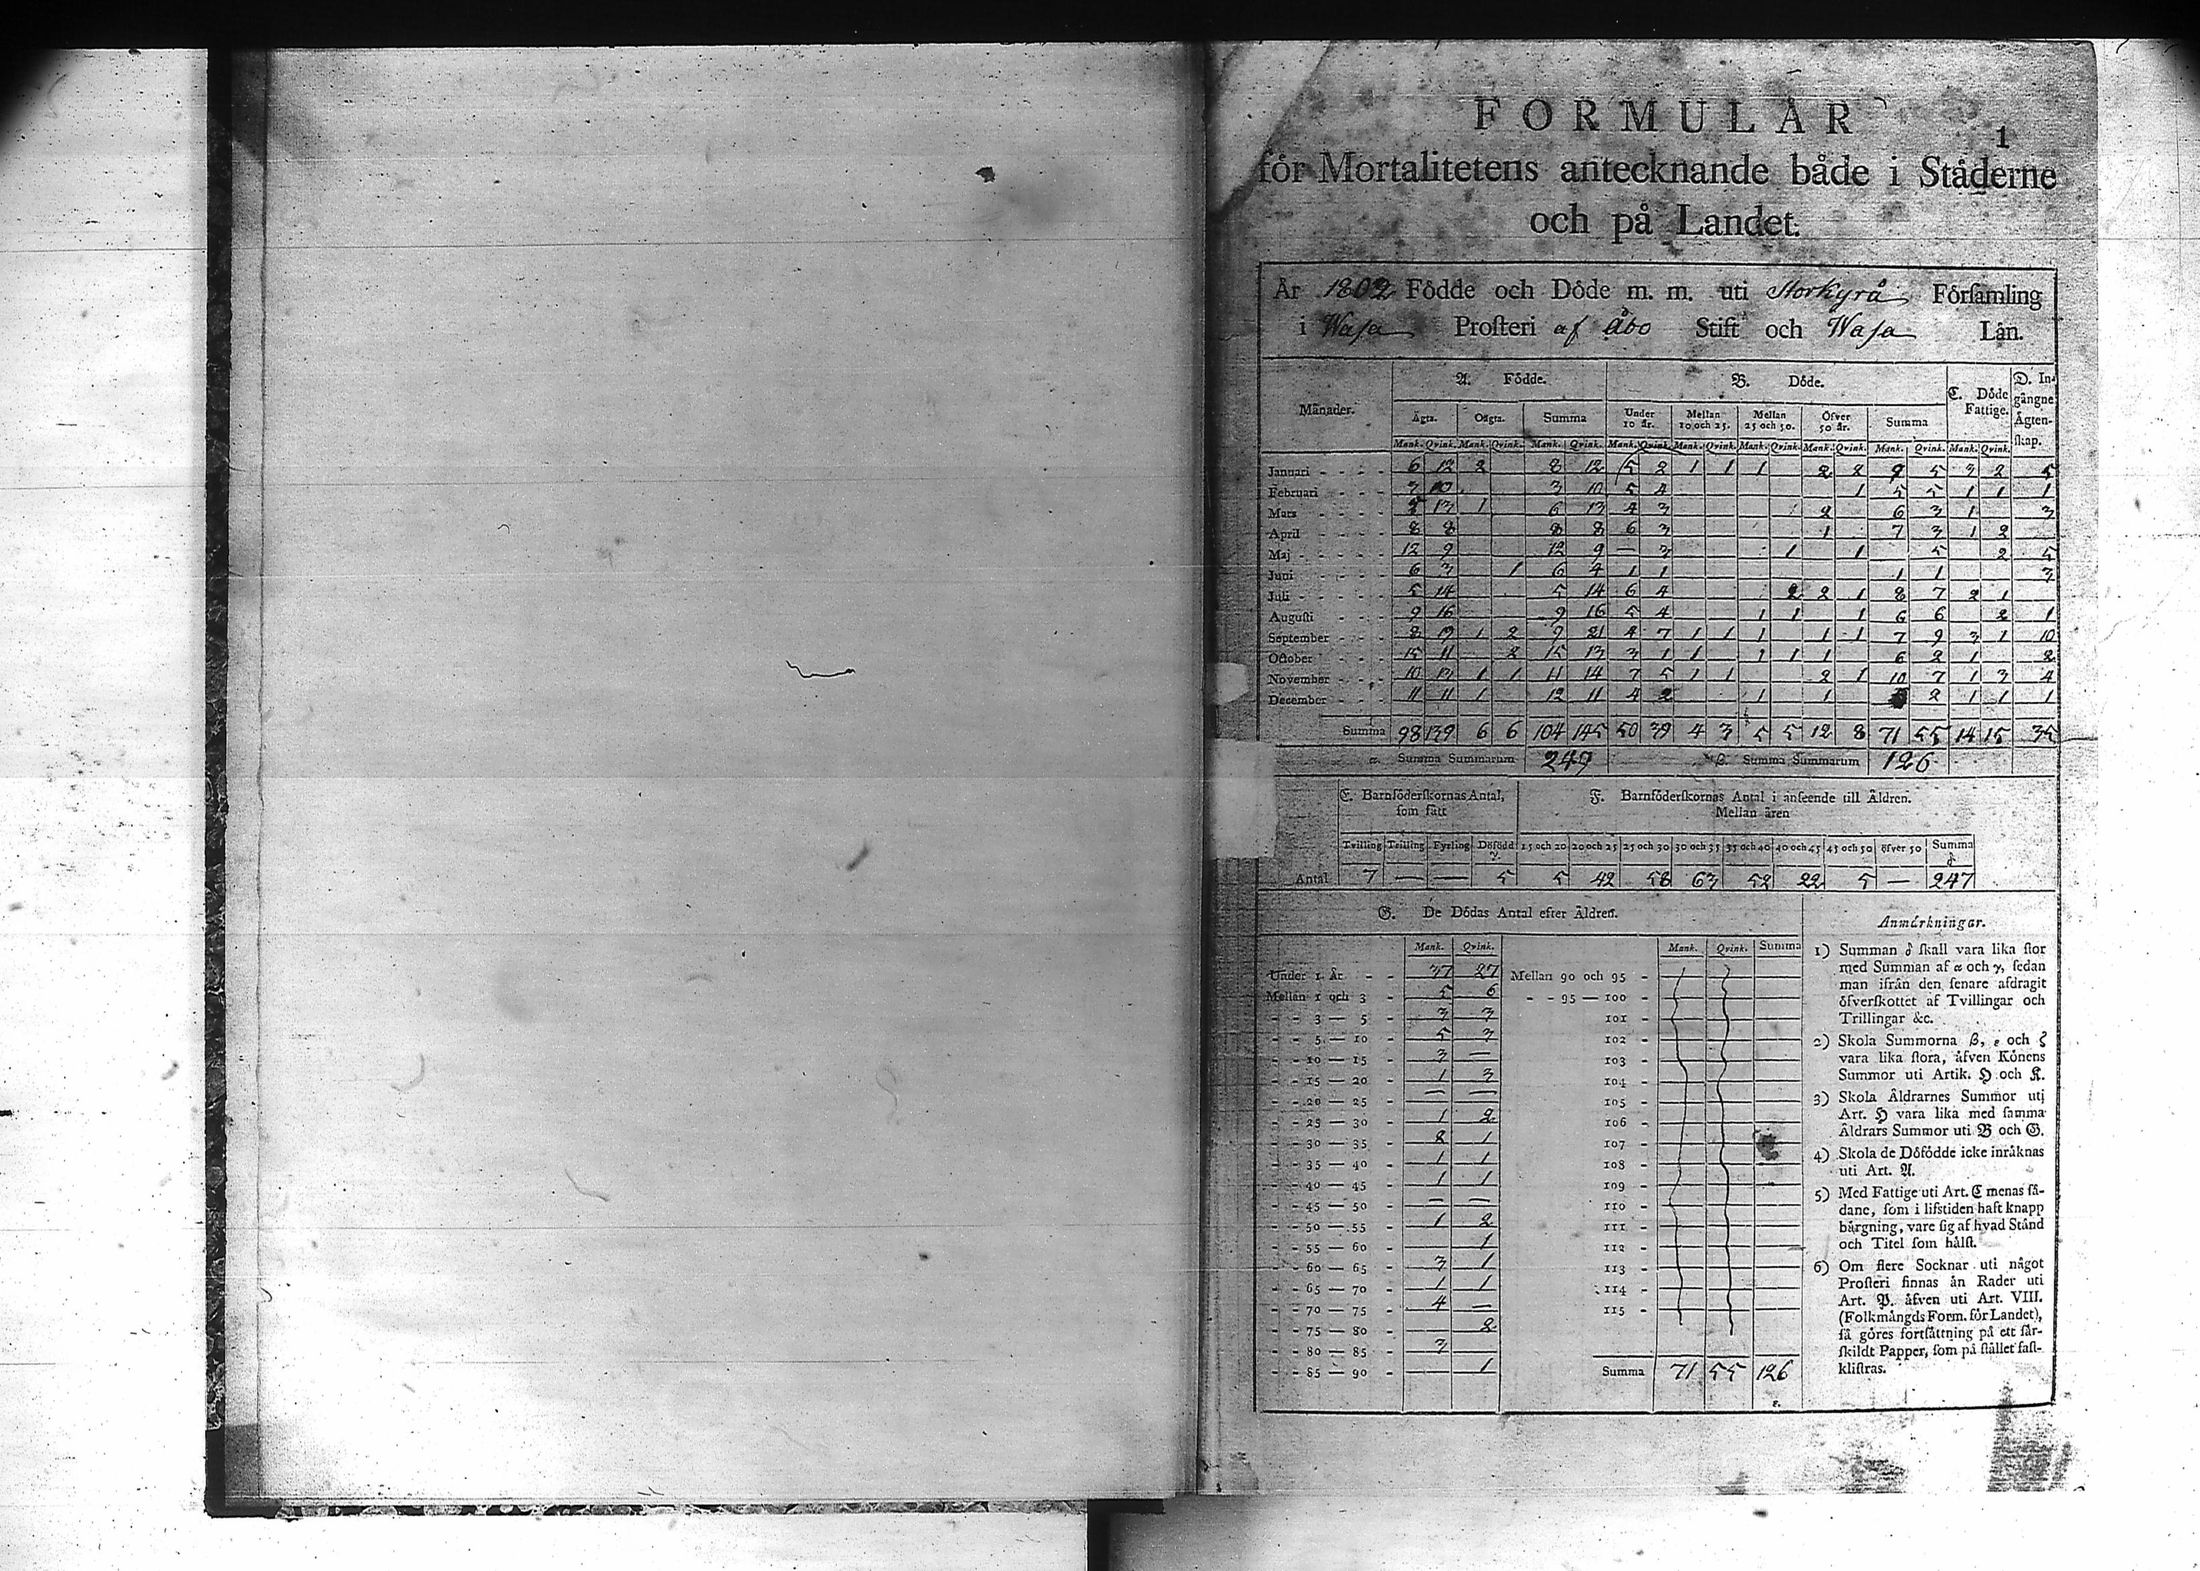 FORMULÅR
1
för Mortalitetens antecknande både i Städerne
och på Landet.
År 1802 Födde och Döde m. m. uti Storkyrå Församling
i Wasa Prosteri af Åbo Stift och Wasa Län.
Månader. A. Födde. B. Döde. C. Döde Fattige. D. Ingångne Ägtenskap.
Ägta. Oägta. Summa Under 10 år. Mellan 10 och 25. Mellan 25 och 50. Öfver 50 år. Summa
Mank. Qvink. Mank. Qvink. Mank. Qvink. Mank. Qvink. Mank. Qvink. Mank. Qvink. Mank. Qvink. Mank. Qvink. Mank. Qvink.
Januari 6 12 2 8 12 5 2 1 1 1 2 2 9 5 3 2 5
Februari 3 10 3 10 5 4 1 5 5 1 1 1
Mars 5 13 1 6 13 4 3 2 6 3 1 3
April 8 8 8 8 6 3 1 7 3 1 2
Maj 12 9 12 9 — 3 1 1 5 2 5
Juni 6 3 1 6 4 1 1 1 1 3
Juli 5 14 5 14 6 4 2 2 1 8 7 2 1
Augusti 9 16 9 16 5 4 1 1 1 6 6 2 1
September 8 19 1 2 9 21 4 7 1 1 1 1 1 7 9 3 1 10
October 15 11 2 15 13 3 1 1 1 1 1 6 2 1 2
November 10 13 1 1 11 14 7 5 1 1 2 1 10 7 1 3 4
December 11 11 1 12 11 4 2 1 1 2 1 1 1
Summa 98 139 6 6 104 145 50 39 4 3 5 5 12 8 71 55 14 15 35
α. Summa Summarum 249 β. Summa Summarum 126
E. Barnföderskornas Antal, F. Barnföderskornas Antal i anseende till Åldren.
som fått Mellan åren
Tvilling Trilling Fyrling Döfödd γ 15 och 20 20 och 25 25 och 30 30 och 35 35 och 40 40 och 45 45 och 50 öfver 50 Summa δ
Antal 7 — — 5 5 42 58 63 52 22 5 — 247
G. De Dödas Antal efter Åldren.
Mank. Qvink. Mank. Qvink. Summa
Under 1 År - - 37 27 Mellan 90 och 95 -
Mellan 1 och 3 - 5 6 - - 95 — 100 -
- - 3 — 5 - 3 3 101 -
- - 5 — 10 - 5 3 102 -
- - 10 — 15 - 3 — 103 -
- - 15 — 20 - 1 3 104 -
- - 20 — 25 - — — 105 -
- - 25 — 30 - 1 2 106 -
- - 30 — 35 - 2 1 107 -
- - 35 — 40 - 1 1 108 -
- - 40 — 45 - 1 1 109 -
- - 45 — 50 - — — 110 -
- - 50 — 55 - 1 2 111 -
- - 55 — 60 - 1 112 -
- - 60 — 65 - 3 1 113 -
- - 65 — 70 - 1 1 114 -
- - 70 — 75 - 4 — 115 -
- - 75 — 80 - 2
- - 80 — 85 - 3
- - 85 — 90 - 1 Summa 71 55 126
ε.
Anmärkningar.
1) Summan δ skall vara lika stor
med Summan af α och γ, sedan
man ifrån den senare afdragit
öfverskottet af Tvillingar och
Trillingar &c.
2) Skola Summorna β, ε och ζ
vara lika stora, äfven Könens
Summor uti Artik. H och K.
3) Skola Åldrarnes Summor uti
Art. H vara lika med samma
Åldrars Summor uti B och G.
4) Skola de Döfödde icke inräknas
uti Art. A.
5) Med Fattige uti Art. C menas så-
dane, som i lifstiden haft knapp
bärgning, vare sig af hvad Stånd
och Titel som hälst.
6) Om flere Socknar uti något
Prosteri finnas än Rader uti
Art. P. äfven uti Art. VIII.
(Folkmängds Form. för Landet),
så göres fortsättning på ett sär-
skildt Papper, som på stället fast-
klistras.